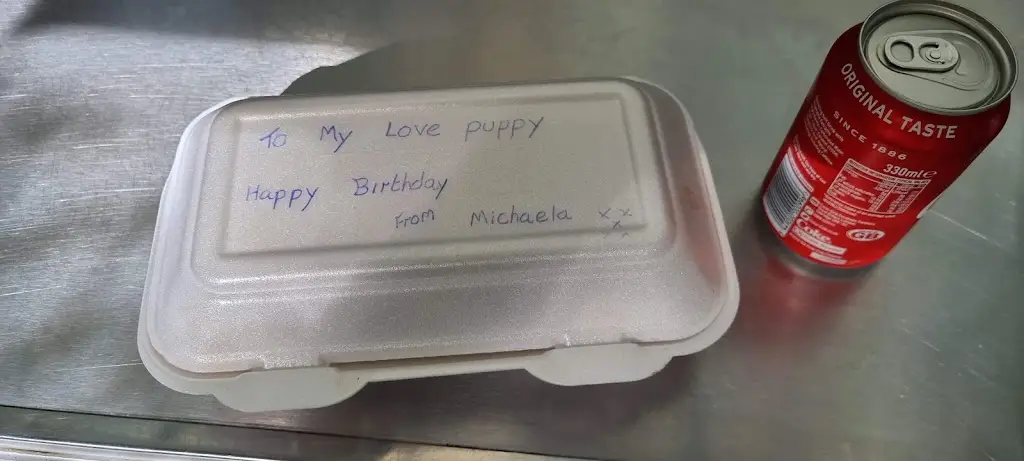 To My Love puppy
Happy Birthday
From Michaela xxx
ORIGINAL TASTE
SINCE 1886
330ml e
Coke
GB